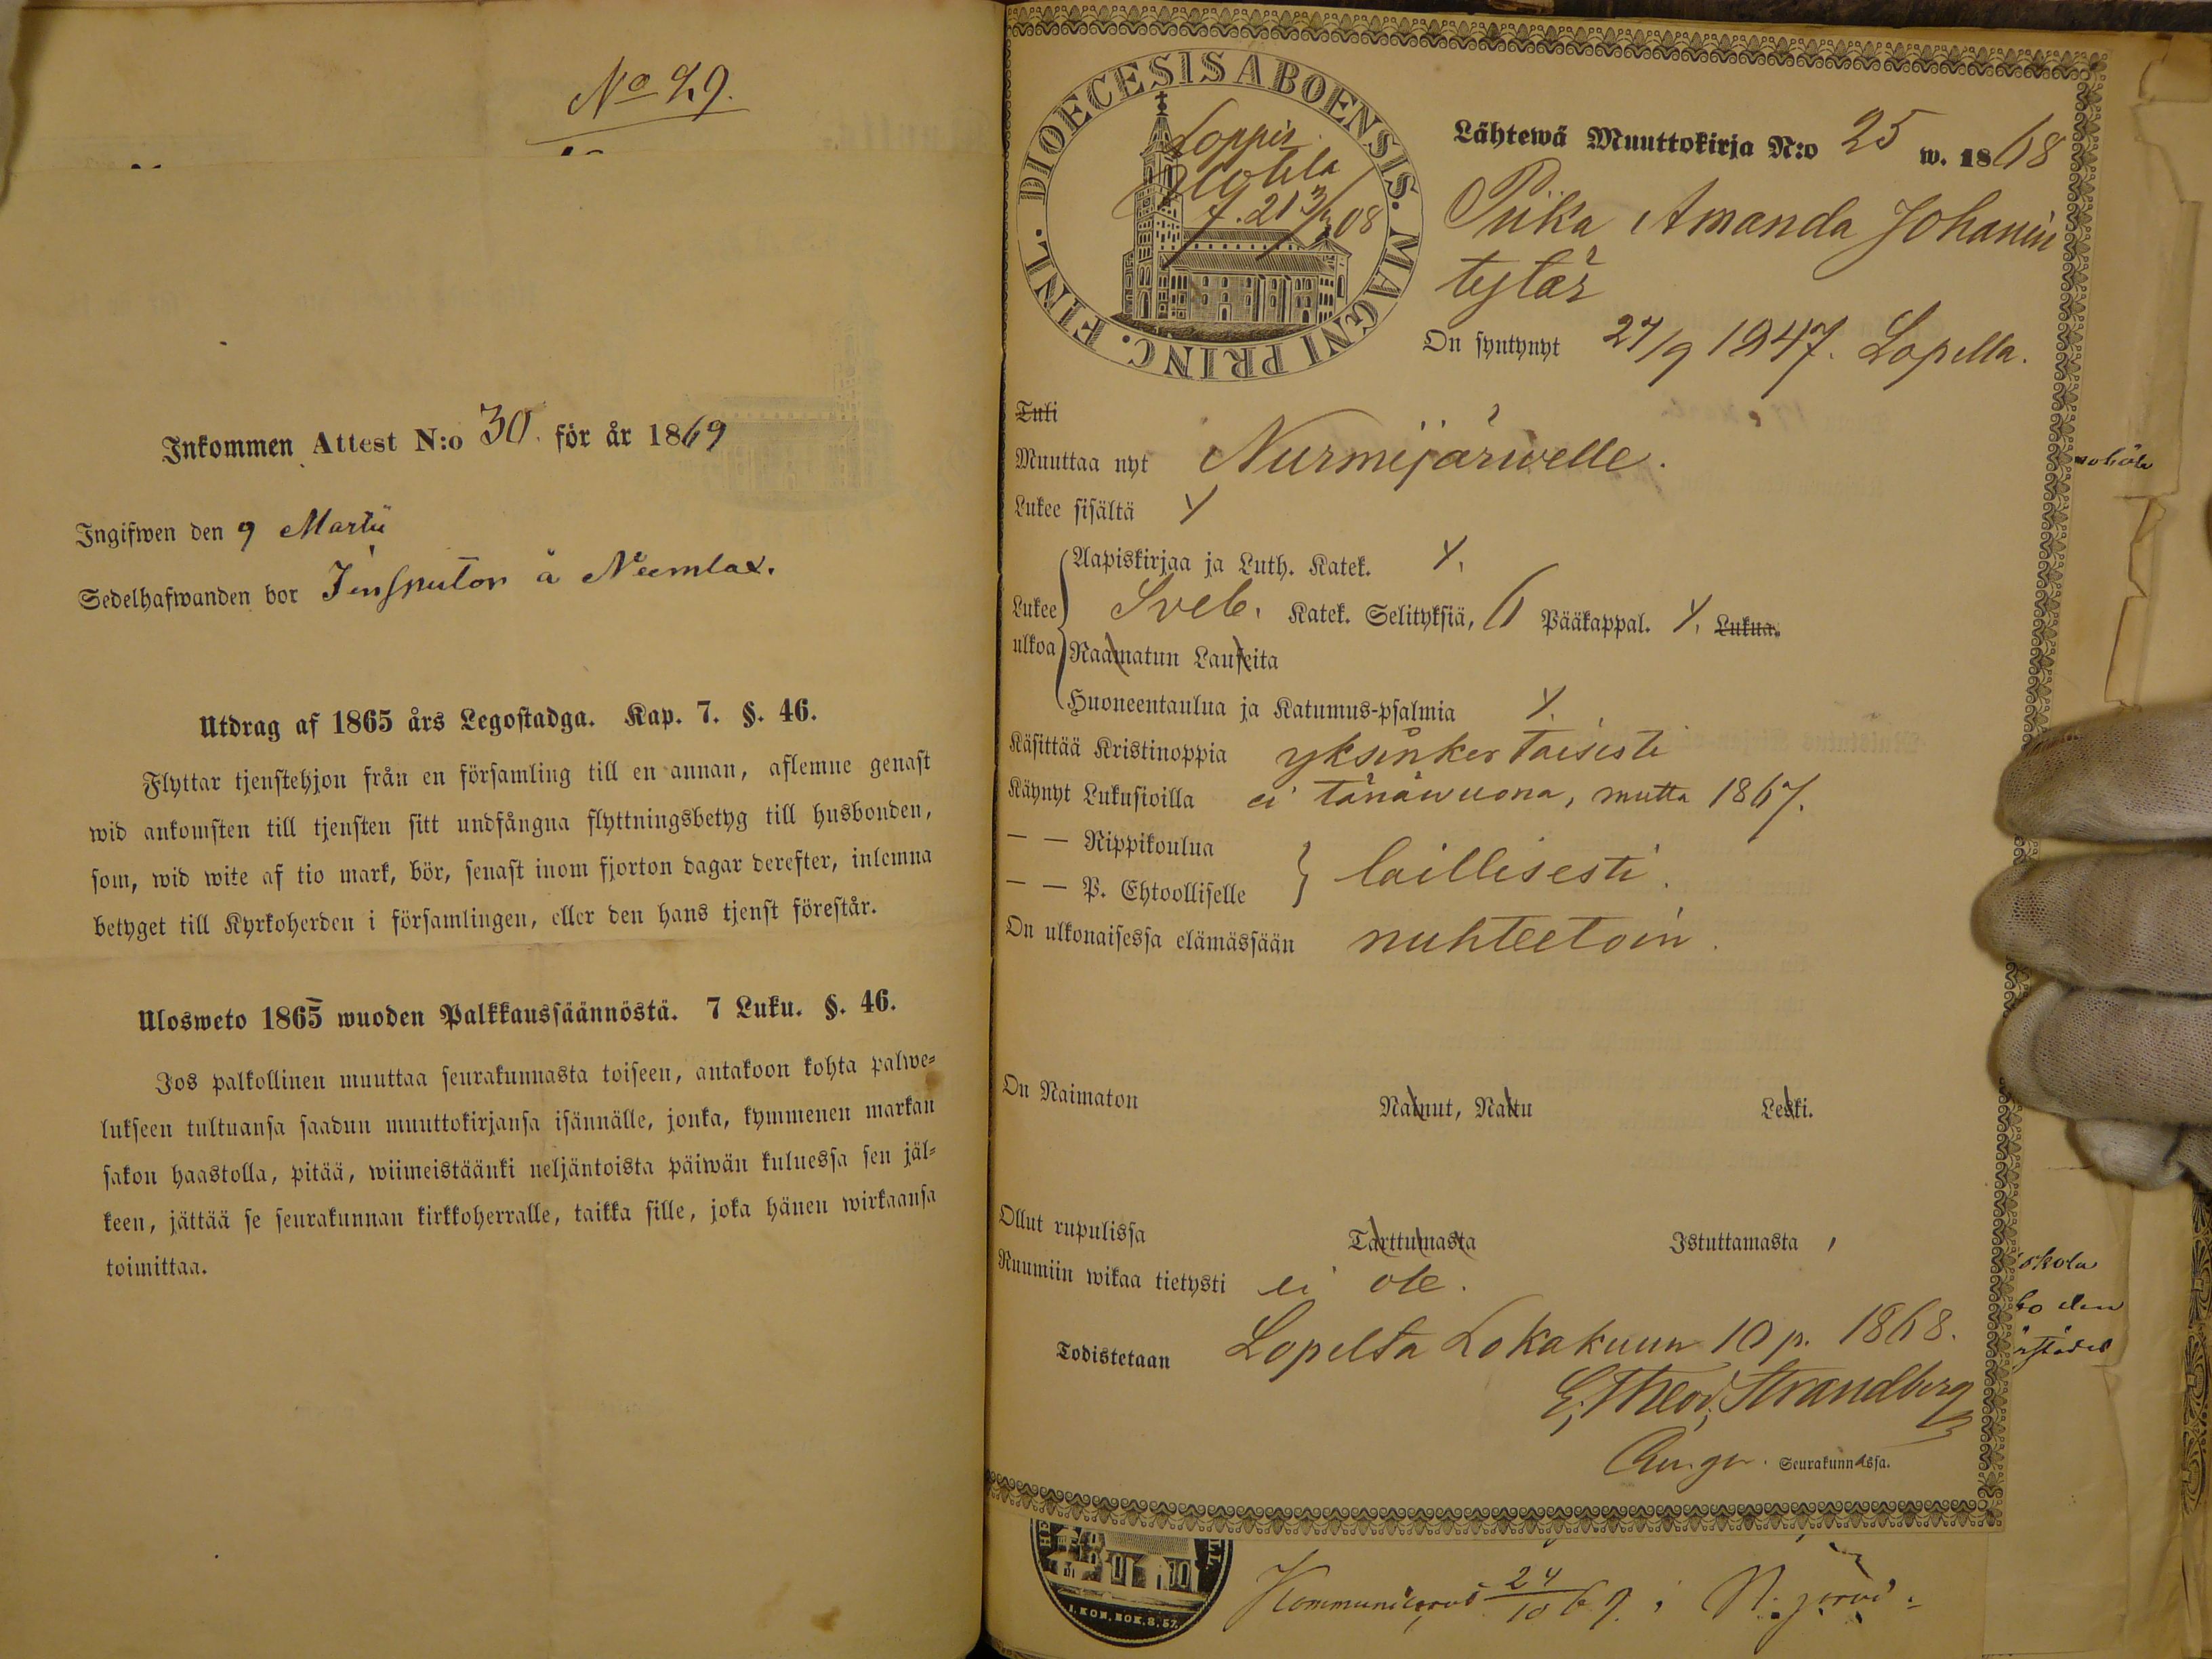 No 29.
Inkommen Attest N:o 30. för år 1869
Ingifwen den 9 Martii
Sedelhafwanden bor Inspector å Neemlax.
Utdrag af 1865 års Legostadga. Kap. 7. §. 46.
Flyttar tjenstehjon från en församling till en annan, aflemne genast
wid ankomsten till tjensten sitt undfångna flyttningsbetyg till husbonden,
som, wid wite af tio mark, bör, senast inom fjorton dagar derefter, inlemna
betyget till Kyrkoherden i församlingen, eller den hans tjenst förestår.
Ulosweto 1865 wuoden Palkkaussäännöstä. 7 Luku. §. 46.
Jos palkollinen muuttaa seurakunnasta toiseen, antakoon kohta palwe=
lukseen tultuansa saadun muuttokirjansa isännälle, jonka, kymmenen markan
sakon haastolla, pitää, wiimeistäänki neljäntoista päiwän kuluessa sen jäl=
keen, jättää se seurakunnan kirkkoherralle, taikka sille, joka hänen wirkaansa
toimittaa.
FINL. DIOECESIS ABOENSIS. MAGNI PRINC.
Loppis
Lähtewä Muuttokirja N:o 25 w. 1868
Piika Amanda Johanin
tytär
On syntynyt 27/9 1847. Lopella.
Tuli
Muuttaa nyt Nurmijärwelle.
Lukee sisältä Y
Aapiskirjaa ja Luth. Katek. Y.
Lukee ulkoa Sveb. Katek. Selityksiä, 6 Pääkappal. Y. Lukua.
Raamatun Lauseita
Huoneentaulua ja Katumus-psalmia Y.
Käsittää Kristinoppia yksinkertaisesti
Käynyt Lukusioilla ei tänäwuona, mutta 1867.
— — Rippikoulua
— — P. Ehtoolliselle } laillisesti.
On ulkonaisessa elämässään nuhteetoin.
On Naimaton Nainut, Naitu Leski.
Ollut rupulissa Tarttumasta Istuttamasta ,
Ruumiin wikaa tietysti ei ole.
Todistetaan Lopelta Lokakuun 10 p. 1868.
E. Theod. Strandberg
Seurakunnassa.
1. KON. BOK. 8, 57.
24/10 69. i N. järvi.